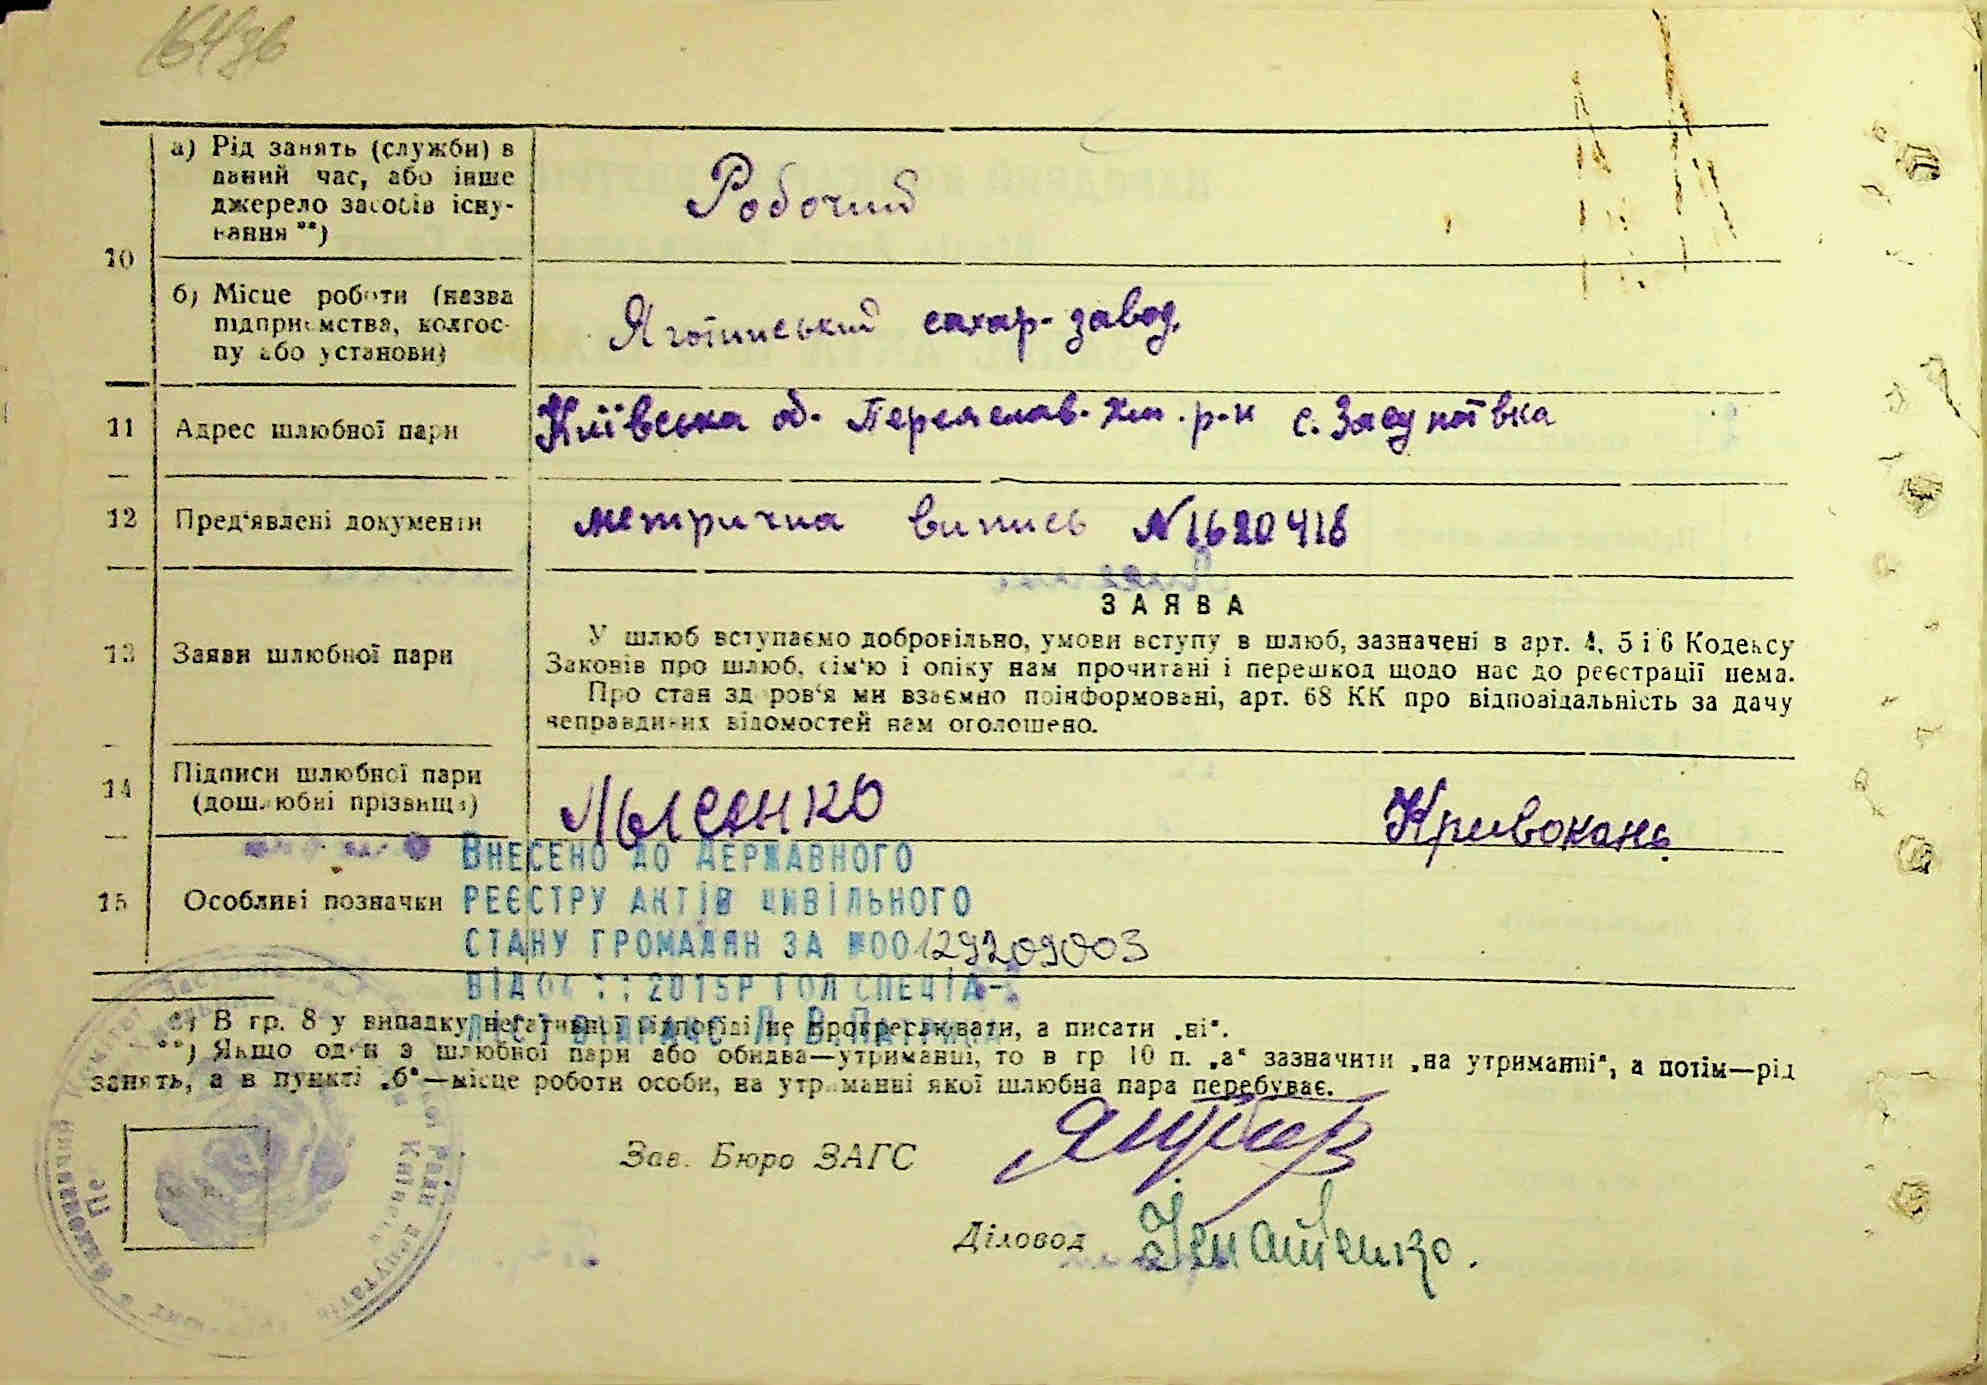 10
а) Рід занять (служби) в
даний час, або інше
джерело засобів існу-
вання **)
Робочий
б) Місце роботи (назва
підприємства, колгос-
пу або установи)
Яготинський сахар-завод.
11 Адрес шлюбної пари
Київська об. Переяслав-Хм. р-н с.
12 Пред'явлені документи
метрична випись №1620418
13 Заяви шлюбної пари
ЗАЯВА
У шлюб вступаємо добровільно, умови вступу в шлюб, зазначені в арт. 4, 5 і 6 Кодексу
Законів про шлюб, сім'ю і опіку нам прочитані і перешкод щодо нас до реєстрації нема.
Про стан здоров'я ми взаємно поінформовані, арт. 68 КК про відповідальність за дачу
неправдивих відомостей нам оголошено.
14 Підписи шлюбної пари
(дошлюбні прізвища)
Лысенко Кривокань
15 Особливі позначки
Внесено до Державного
реєстру актів цивільного
стану громадян за №00129209003
від 2015р гол спеціа-
*) В гр. 8 у випадку негативної відповіді не прокреслювати, а писати „ні“.
**) Якщо один з шлюбної пари або обидва—утриманці, то в гр 10 п. „а“ зазначити „на утриманні“, а потім—рід
занять, а в пункті „б“—місце роботи особи, на утриманні якої шлюбна пара перебуває.
Зав. Бюро ЗАГС
Діловод Ігнатенко.